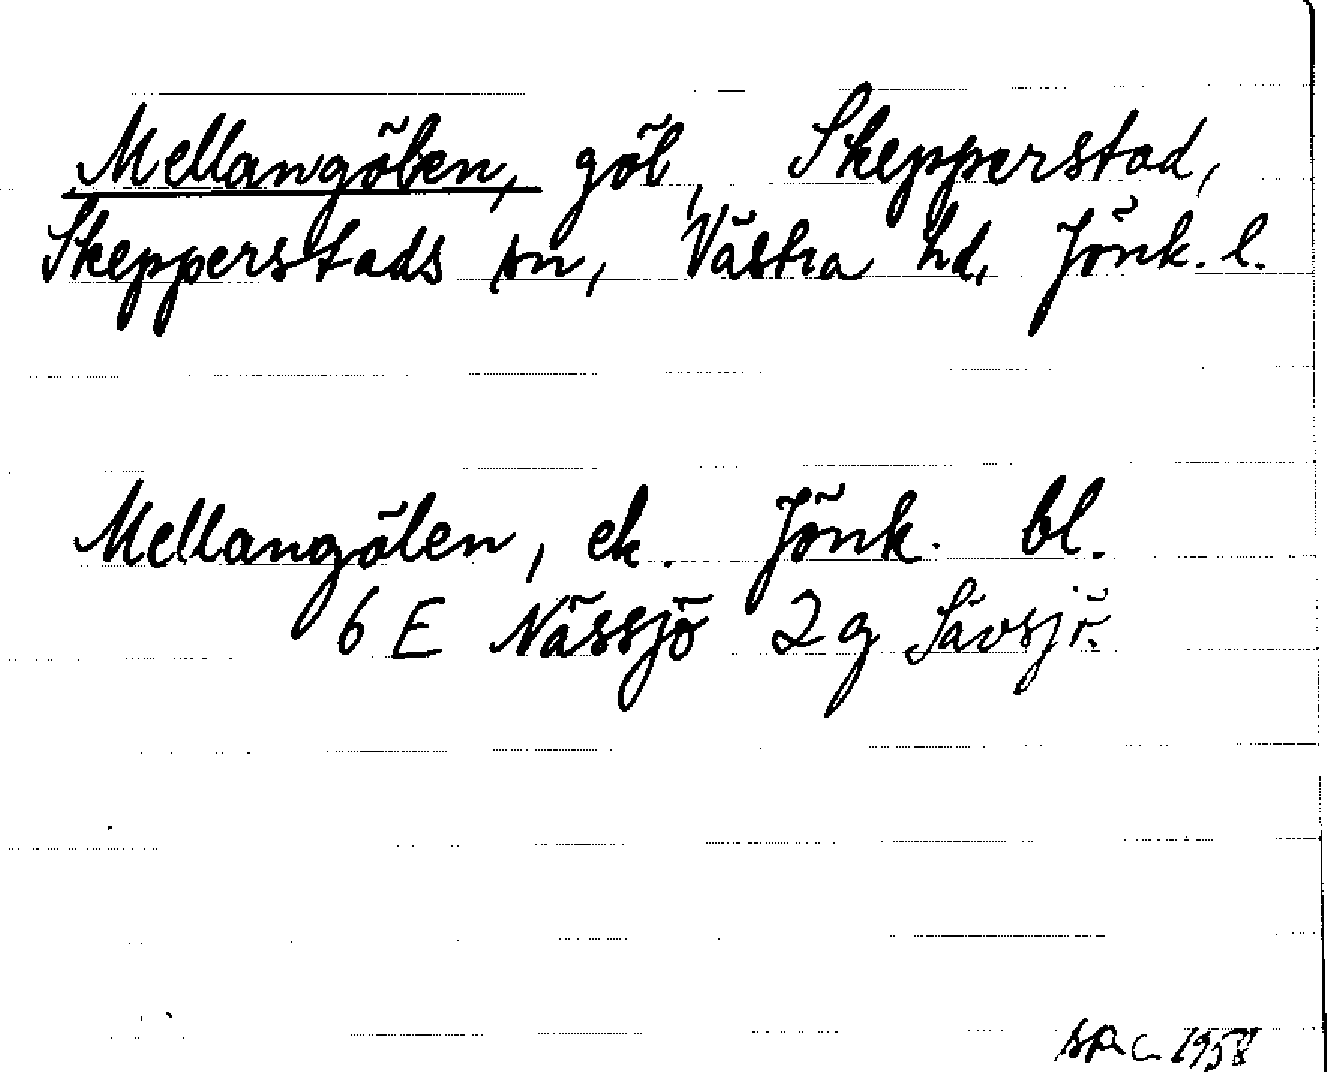 Mellangölen, göl, Skepperstad,
Skepperstads sn, Västra hd, Jönk. l.
Mellangölen, ek. Jönk. bl.
6 E Nässjö 2 g Sävsjö.
1958